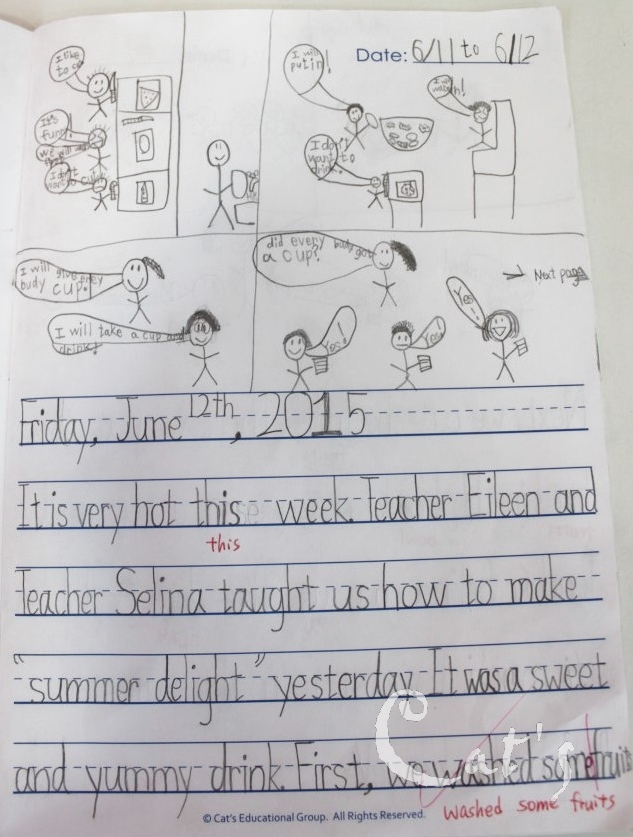 Date: 6/11 to 6/12
I like
to c
It's
fun
we will
I don't
want to cut!
I will
put in!
I don't
want to
drink!
I will
wash!
I will give every
body cup!
I will take a cup and
drink!
did every body got
a cup?
Yes!
Yes!
Yes!
→ Next page
Friday, June 12th, 2015
It is very hot this week. Teacher Eileen and
this
Teacher Selina taught us how to make
"summer delight" yesterday. It was a sweet
and yummy drink. First, we washed some fruits
washed some fruits
Cat's
© Cat's Educational Group. All Rights Reserved.